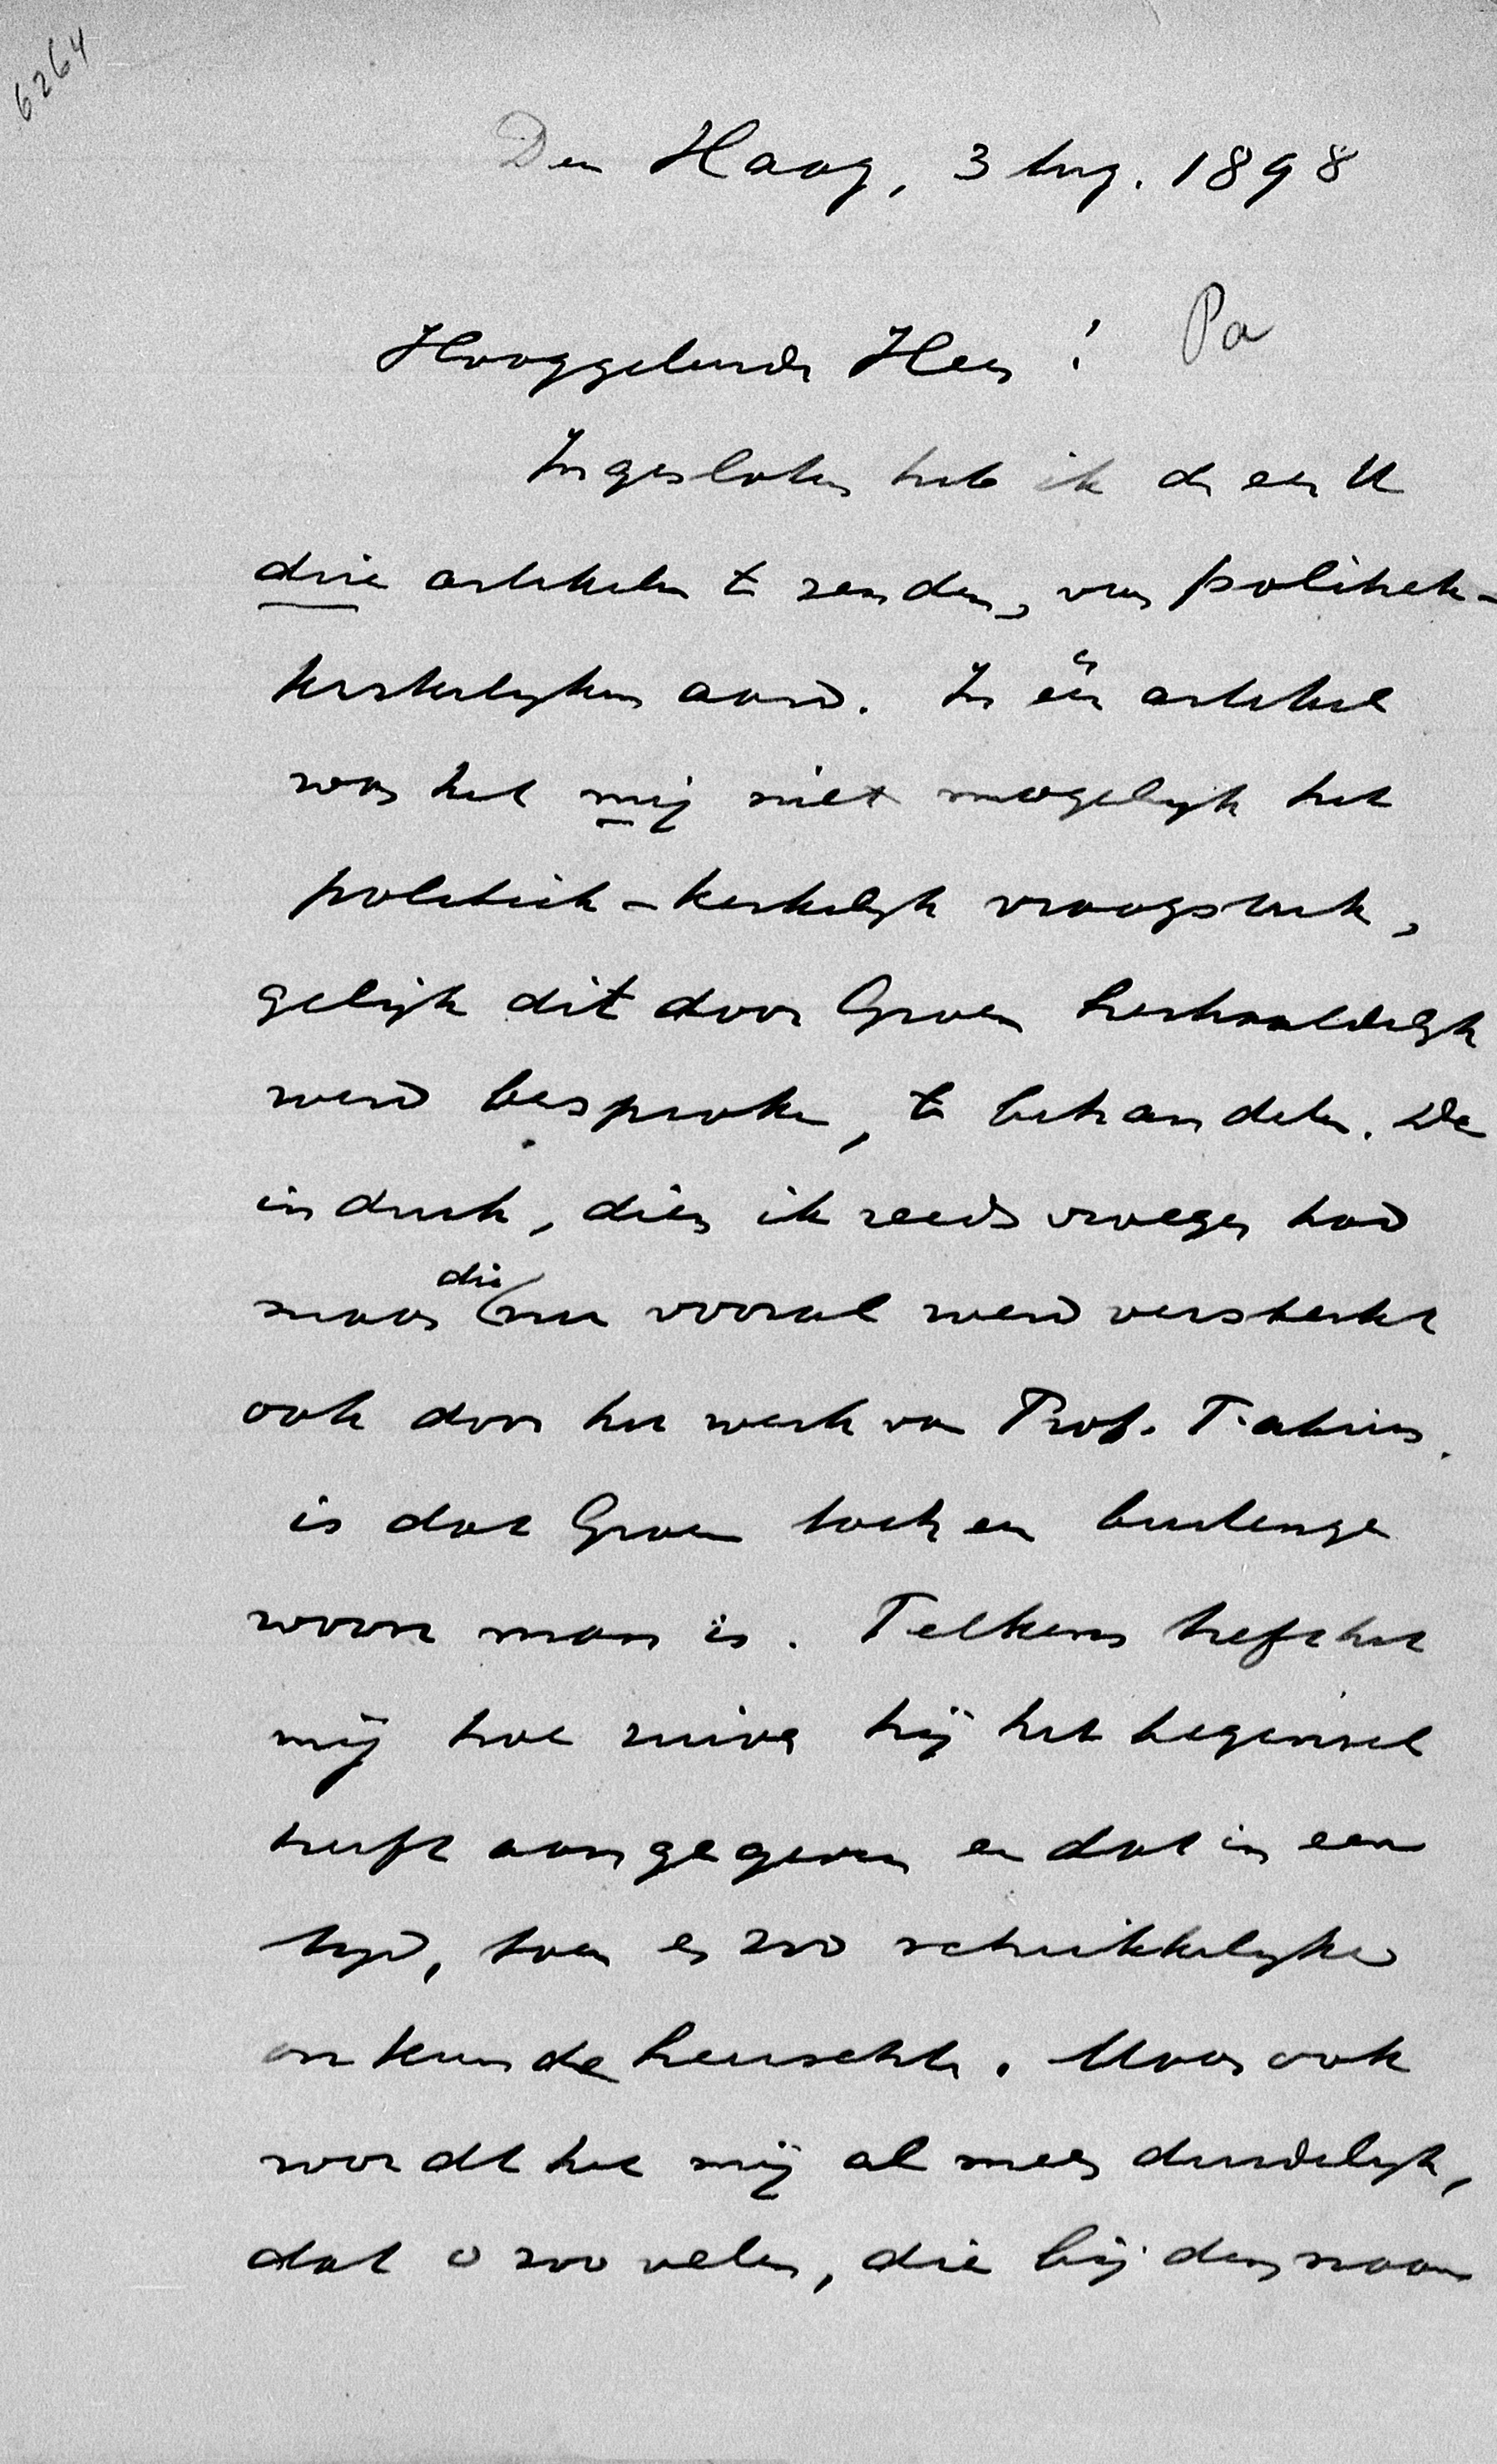 6264
Den Haag, 3 Aug. 1898
Hooggeleerde Heer! Pa
Ingesloten heb ik de eer U
drie artikelen te zenden, van politiek-
kerkelijken aard. In één artikel
was het mij niet mogelijk het
politiek-kerkelijk vraagstuk,
gelijk dit door Groen herhaaldelijk
werd besproken, te behandelen. De
indruk, dien ik reeds vroeger had
maar die nu vooral werd versterkt
ook door het werk van Prof. Fabius.
is dat Groen toch een buitenge
woon man is. Telkens treft het
mij hoe zuiver hij het beginsel
heeft aangegeven en dat in een
tijd, toen er zoo schrikkelijke
onkunde heerschte. Maar ook
wordt het mij al meer duidelijk,
dat o zoo velen, die bij den naam